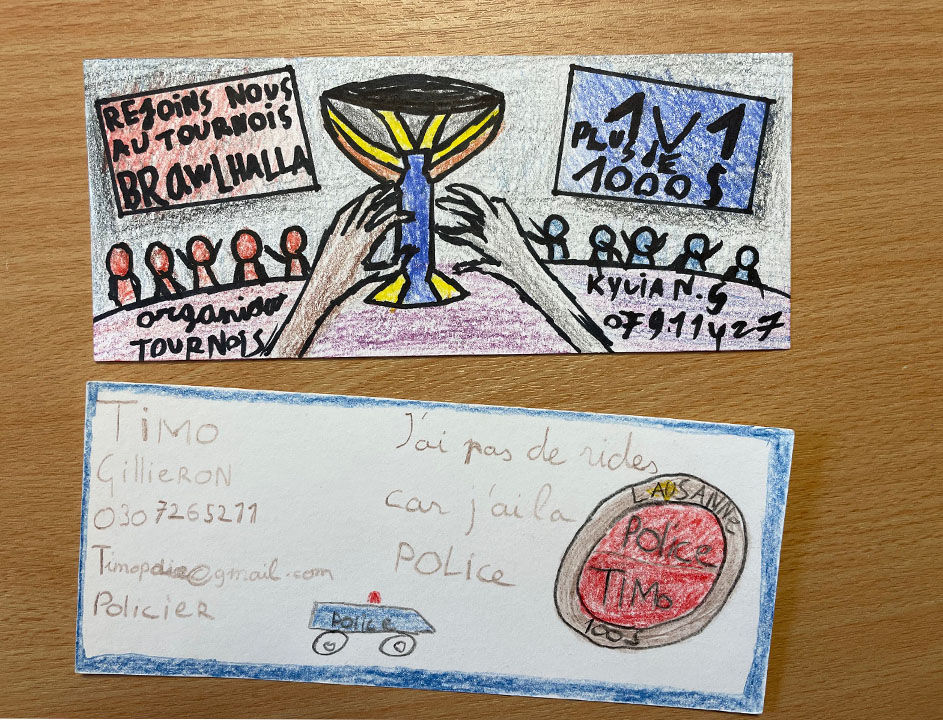 REJOINS NOUS
AU TOURNOIS
BRAWLHALLA
1V1
PLUS DE
1000 $
organisa
TOURNOIS
KYLIA N.G
079.11427
TiMO
GillieRON
030 7265211
Timopolice@gmail.com
POLICIER
J'ai pas de rides
car j'ai la
POLICe
POLICE
LAUSANNE
Police
TiMo
100$